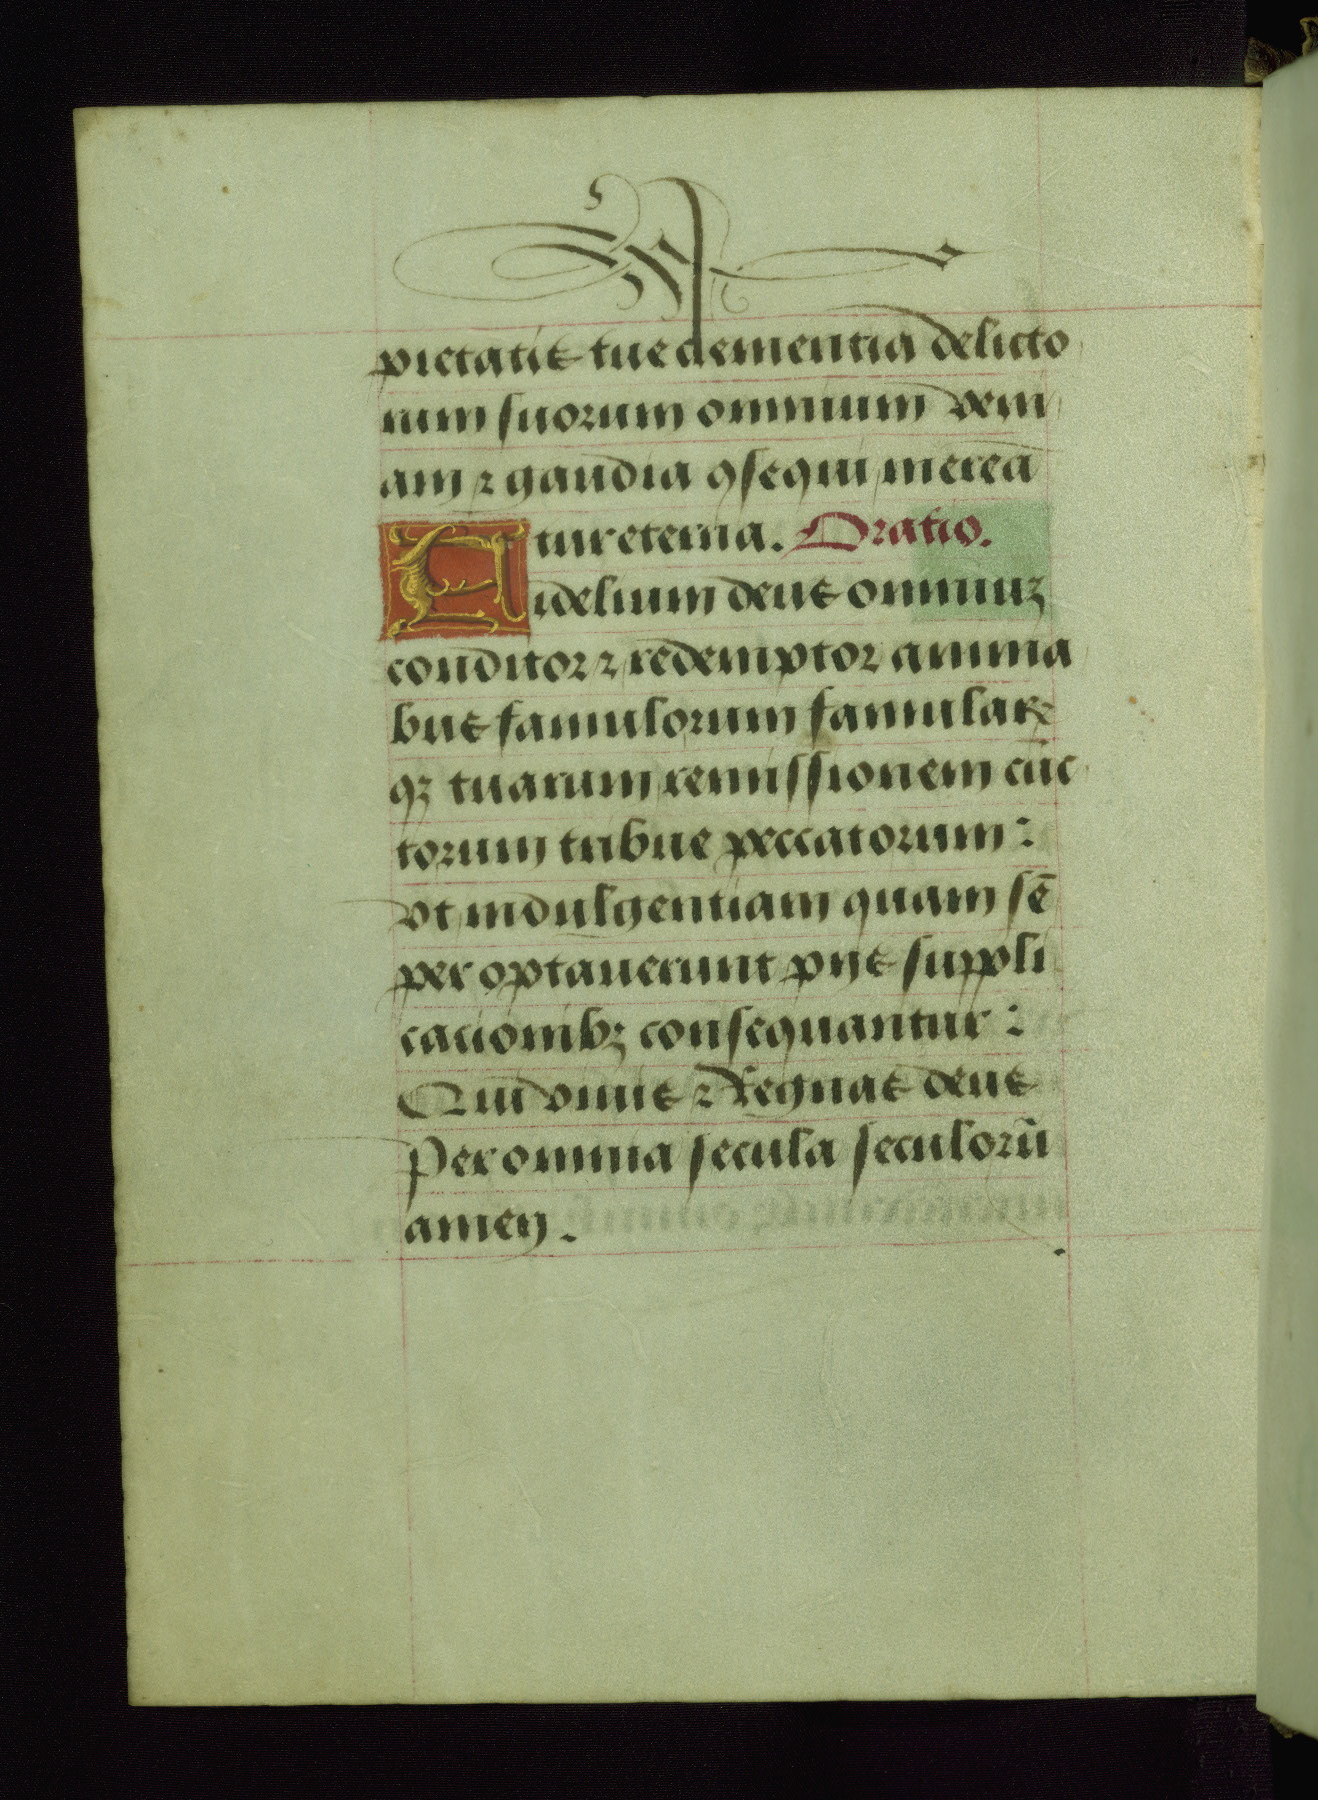 pietatis tue clementia delicto
rum suorum omnium veni
am ⁊ gaudia ꝯsequi merea
tur eterna. Oratio.
Fidelium deus omniuꝫ
conditor ⁊ redemptor anima
bus famulorum famulaꝝ
qꝫ tuarum remissionem cūc
torum tribue peccatorum:
vt indulgentiam quam sē
per optauerunt pijs suppli
cationibꝫ consequantur:
Qui viuis ⁊ Regnas deus
Per omnia secula seculorū
amen.